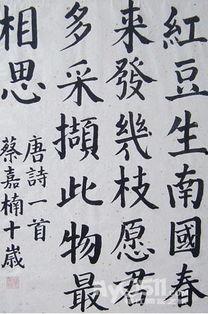 紅豆生南國春
來發幾枝愿君
多采擷此物最
相思
唐詩一首
蔡嘉楠十歲